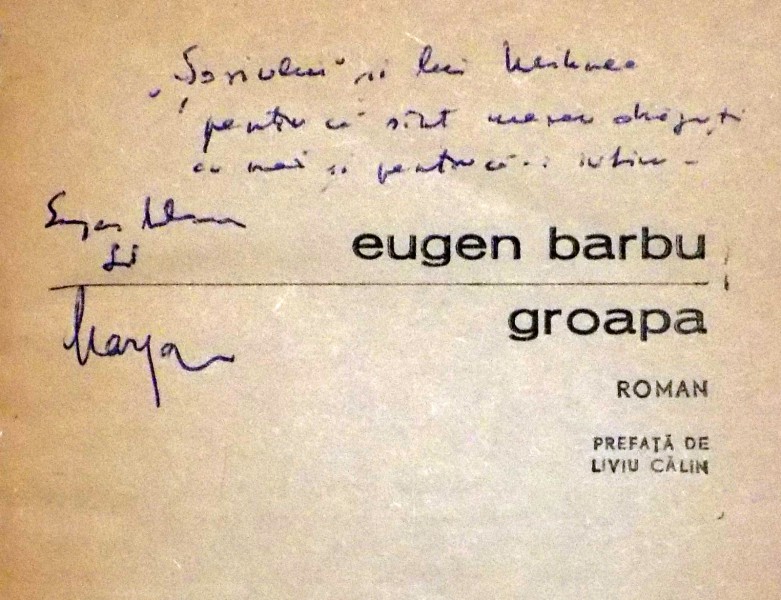 și lui
pentru că sînt mereu drăguți
cu noi și pentru că-i iubim –
Eugen Barbu
și
Marga
eugen barbu
groapa
ROMAN
PREFAȚĂ DE
LIVIU CĂLIN